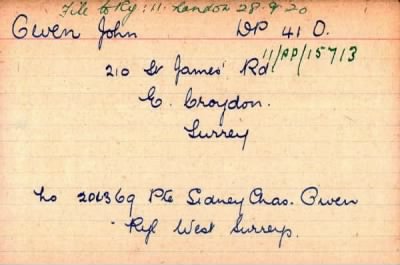 File to Ry: 11: London 28.9.20
Owen John DP 41 O.
11/AP/15713
210 St James' Rd
E. Croydon.
Surrey
Pte Sidney Chas. Owen
Ryl West Surreys.